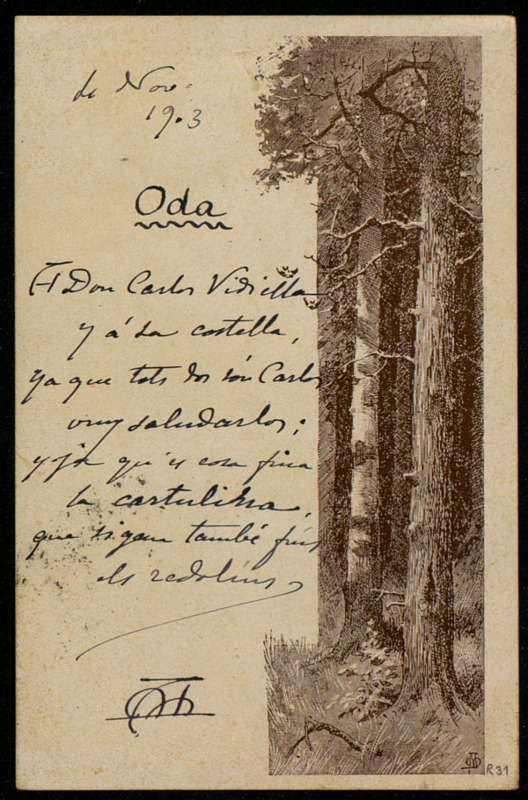 de Nov.
1903
Oda
A Don Carlos Vidiella
y á sa costella,
ya que tots dos són Carlos
vuy saludarlos;
y ja qu' es cosa fina
la cartulina,
que sigan també fins
els redolins
R31